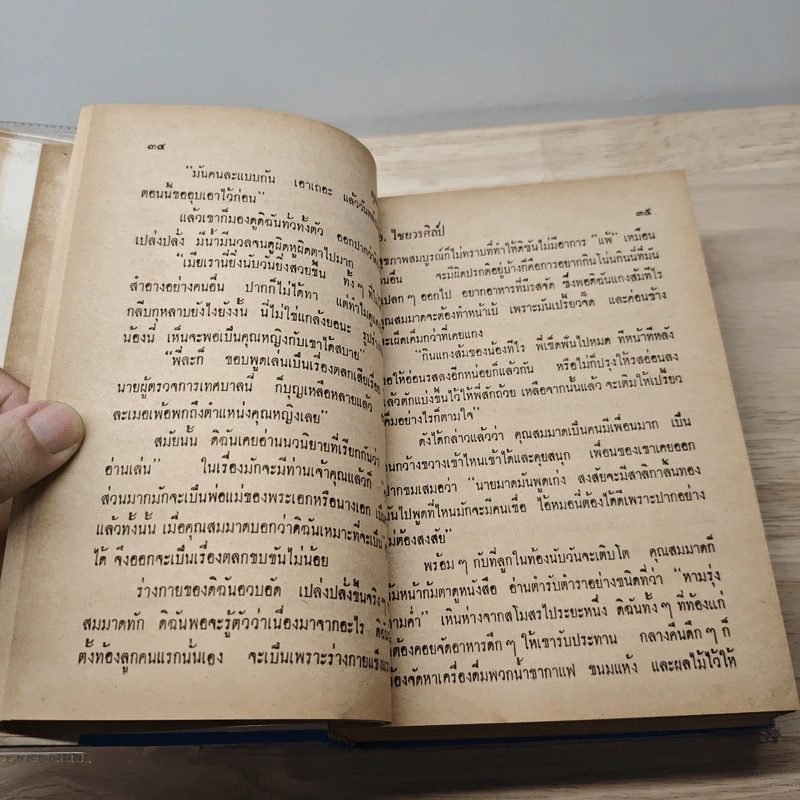 ๓๔
"มันคนละแบบกัน เอาเถอะ แล้ววันหนึ่ง
ตอนนี้ขออุบเอาไว้ก่อน"
แล้วเขาก็มองดูดิฉันทั่วทั้งตัว ออกปากว่าดิฉัน
เปล่งปลั่ง มีน้ำมีนวลจนดูผิดหูผิดตาไปมาก
"เมียเรานี่ยิ่งนับวันยิ่งสวยขึ้น ทั้งๆ ที่ไม่
สำอางอย่างคนอื่น ปากก็ไม่ได้ทา แต่ทำไมแดง
กลีบกุหลาบยังไงยังงั้น นี่ไม่ใช่แกล้งยอนะ รูปร่าง
น้องนี่ เห็นจะพอเป็นคุณหญิงกับเขาได้สบาย"
"พี่ละก็ ชอบพูดเล่นเป็นเรื่องตลกเสียเรื่อย
นายผู้ตรวจการเทศบาลนี่ ก็บุญเหลือหลายแล้ว
ละเมอเพ้อพกถึงตำแหน่งคุณหญิงเลย"
สมัยนั้น ดิฉันเคยอ่านนวนิยายที่เรียกกันว่า
อ่านเล่น" ในเรื่องมักจะมีท่านเจ้าคุณแล้วก็
ส่วนมากมักจะเป็นพ่อแม่ของพระเอกหรือนางเอก เป็น
แล้วทั้งนั้น เมื่อคุณสมมาดบอกว่าดิฉันเหมาะที่จะเป็น
ได้ จึงออกจะเป็นเรื่องตลกขบขันไม่น้อย
ร่างกายของดิฉันอวบอัด เปล่งปลั่งขึ้นจริงๆ
สมมาดทัก ดิฉันพอจะรู้ตัวว่าเนื่องมาจากอะไร
ตั้งท้องลูกคนแรกนั่นเอง จะเป็นเพราะร่างกายแข็งแรง
๓๕
ว. ไชยวรศิลป์
สุขภาพสมบูรณ์ก็ไม่ทราบที่ทำให้ดิฉันไม่มีอาการ "แพ้" เหมือน
คนอื่น จะมีผิดปรกติอยู่บ้างก็คือการอยากกินโน่นกินนี่ที่มัน
แปลกๆ ออกไป อยากอาหารที่มีรสจัด ซึ่งพอดิฉันแกงส้มทีไร
คุณสมมาดจะต้องทำหน้าเบ้ เพราะมันเปรี้ยวจี๊ด และค่อนข้าง
จะเผ็ดเค็มกว่าที่เคยแกง
"กินแกงส้มของน้องทีไร พี่เข็ดฟันไปหมด ทีหน้าทีหลัง
ขอให้อ่อนรสลงอีกหน่อยก็แล้วกัน หรือไม่ก็ปรุงให้รสอ่อนลง
แล้วตักแบ่งขึ้นไว้ให้พี่สักถ้วย เหลือจากนั้นแล้ว จะเติมให้เปรี้ยว
เค็มอย่างไรก็ตามใจ"
ดังได้กล่าวแล้วว่า คุณสมมาดเป็นคนมีเพื่อนมาก เป็น
คนกว้างขวางเข้าไหนเข้าได้และคุยสนุก เพื่อนของเขาเคยออก
ปากชมเสมอว่า "นายมาดมันพูดเก่ง สงสัยจะมีสาลิกาลิ้นทอง
มันไปพูดที่ไหนมักจะมีคนเชื่อ ไอ้หมอนี่ต้องได้ดีเพราะปากอย่าง
ไม่ต้องสงสัย"
พร้อมๆ กับที่ลูกในท้องนับวันจะเติบโต คุณสมมาดก็
ก้มหน้าก้มตาดูหนังสือ อ่านตำรับตำราอย่างชนิดที่ว่า "หามรุ่ง
หามค่ำ" เหินห่างจากสโมสรไประยะหนึ่ง ดิฉันทั้งๆ ที่ท้องแก่
ก็ต้องคอยจัดอาหารดึกๆ ให้เขารับประทาน กลางคืนดึกๆ ก็
ต้องจัดหาเครื่องดื่มพวกน้ำชากาแฟ ขนมแห้ง และผลไม้ไว้ให้